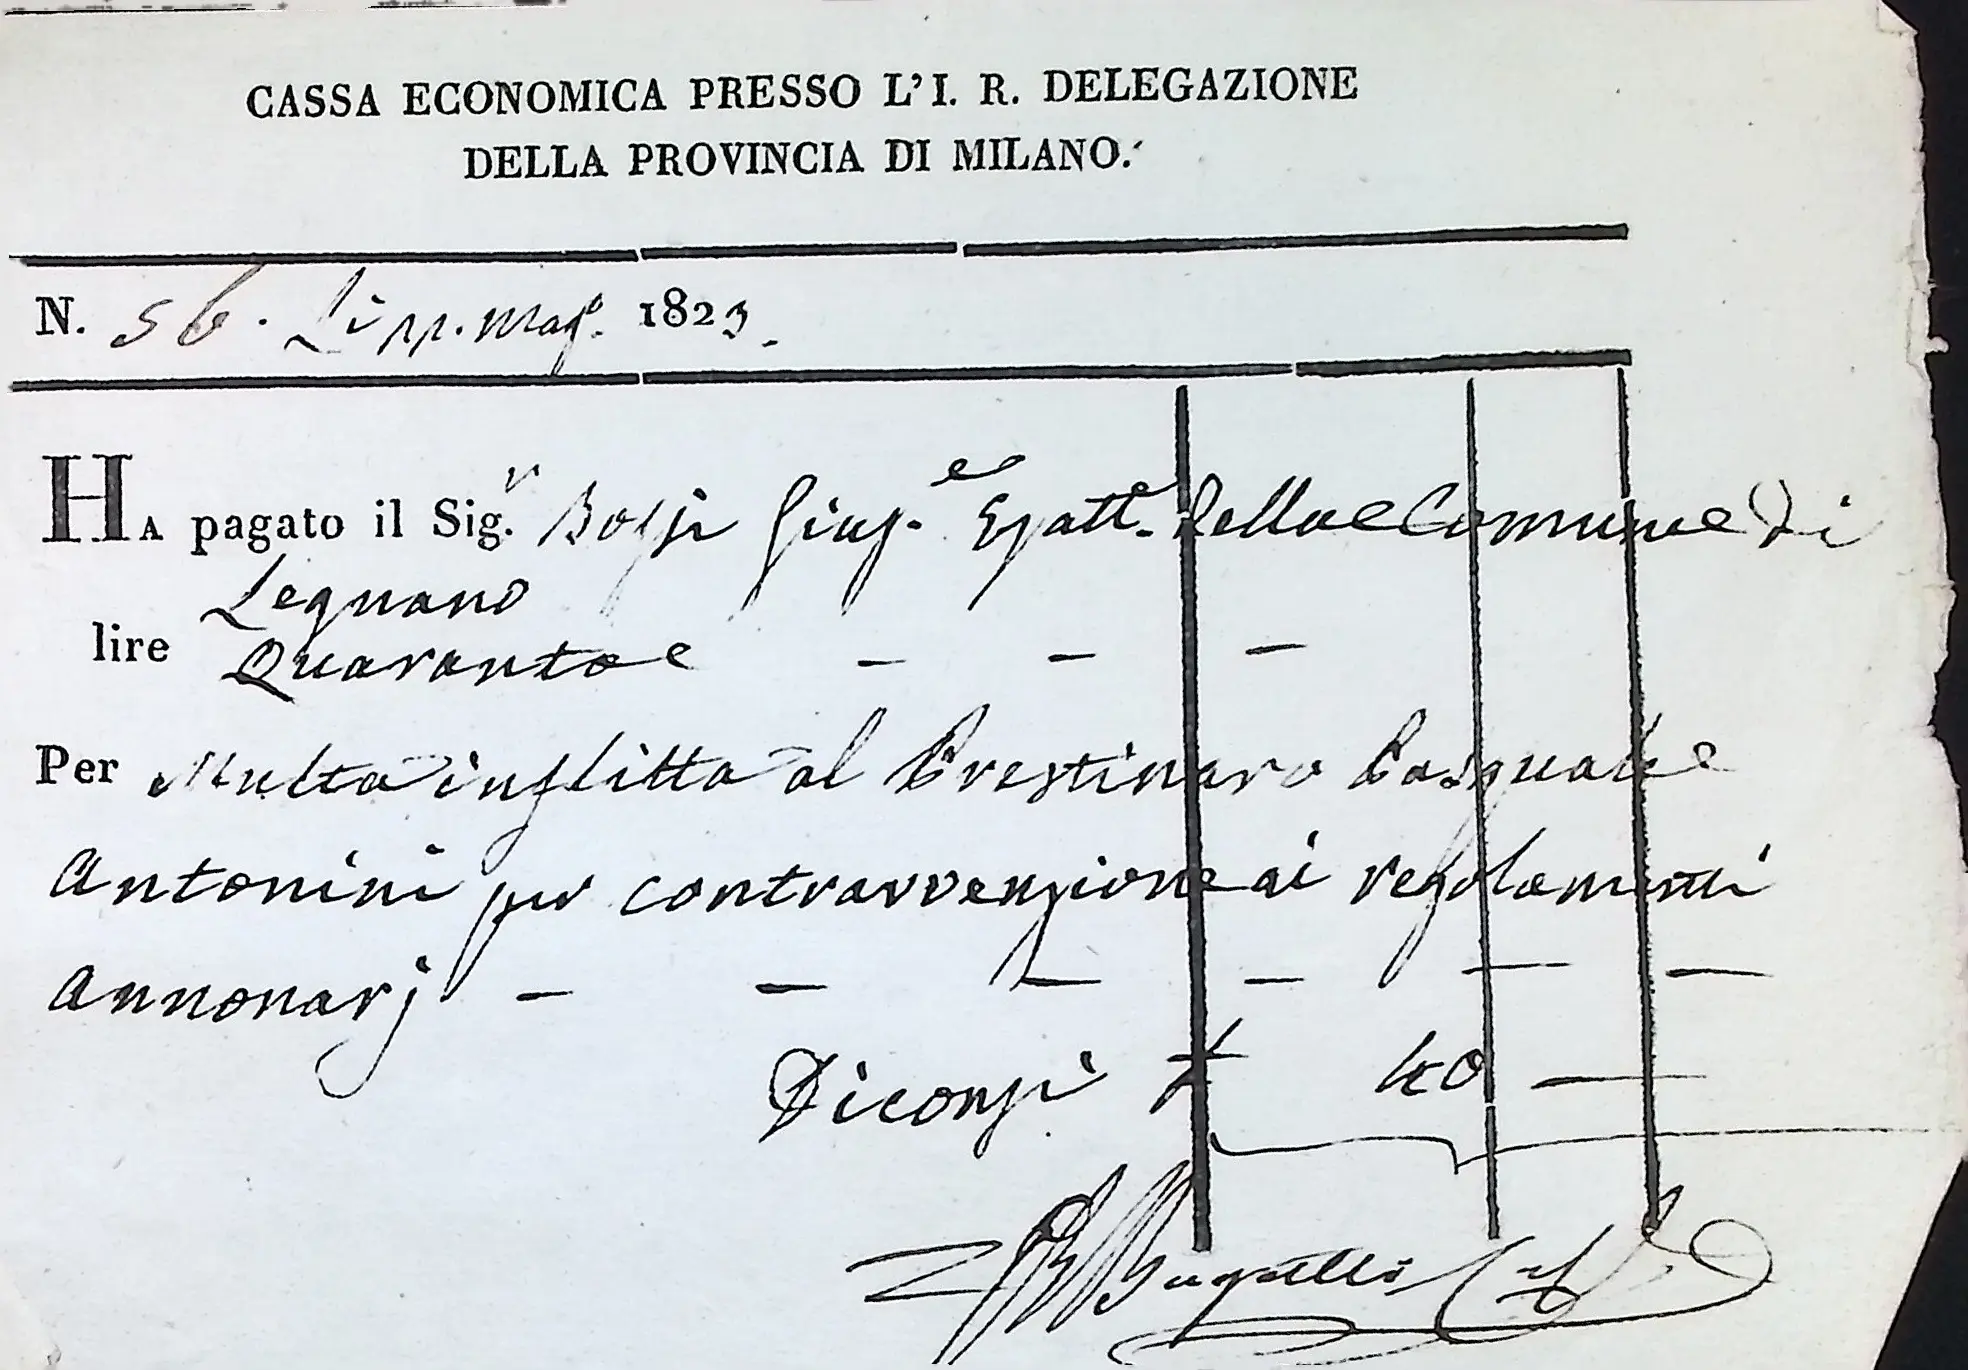 CASSA ECONOMICA PRESSO L' I. R. DELEGAZIONE
DELLA PROVINCIA DI MILANO.
N. 56. Li mag.o 1823.
HA pagato il Sig.r Bossi Gius.e Esatt.e della Comune di
Legnano
lire Quaranta - - -
Per Multa inflitta al Prestinaro Pasquale
Antonini per contravvenzione ai regolamenti
Annonarj - - - - - -
Diconsi £ 40 —
Bugatti